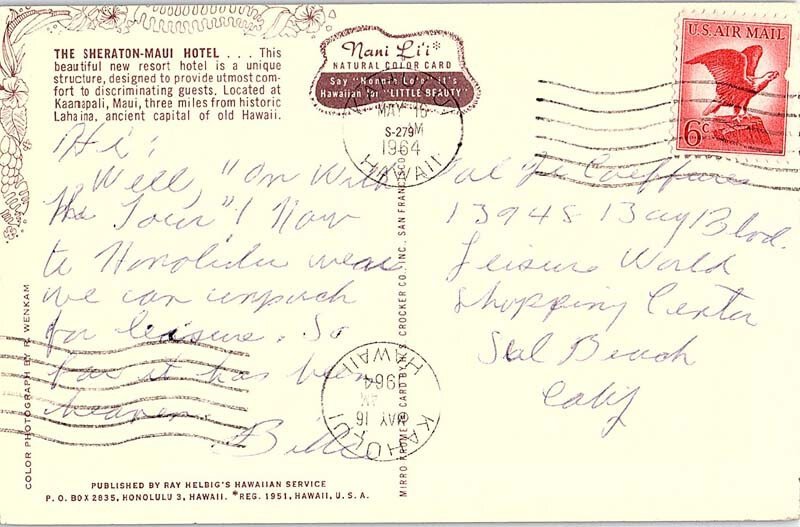 THE SHERATON-MAUI HOTEL . . . This
beautiful new resort hotel is a unique
structure, designed to provide utmost com-
fort to discriminating guests. Located at
Kaanapali, Maui, three miles from historic
Lahaina, ancient capital of old Hawaii.
Nani Li'i*
NATURAL COLOR CARD
Say "Nonnie Lee" It's
Hawaiian for "LITTLE BEAUTY"
S-279
U.S. AIR MAIL
6c
MAY 16
AM
1964
HAWAII
Hi!
Well, "On With
the Tour"! Now
to Honolulu
we can unpack
for leisure. So
far it has been
heaven.
Billie
Coiffures
13948 Bay Blvd.
Leisure World
Shopping Center
Seal Beach
Calif
KAHULUI
MAY 16
AM
1964
HAWAII
COLOR PHOTOGRAPH BY R. WENKAM
CROCKER CO., INC., SAN FRANCISCO
PUBLISHED BY RAY HELBIG'S HAWAIIAN SERVICE
P. O. BOX 2835, HONOLULU 3, HAWAII. *REG. 1951, HAWAII, U. S. A.